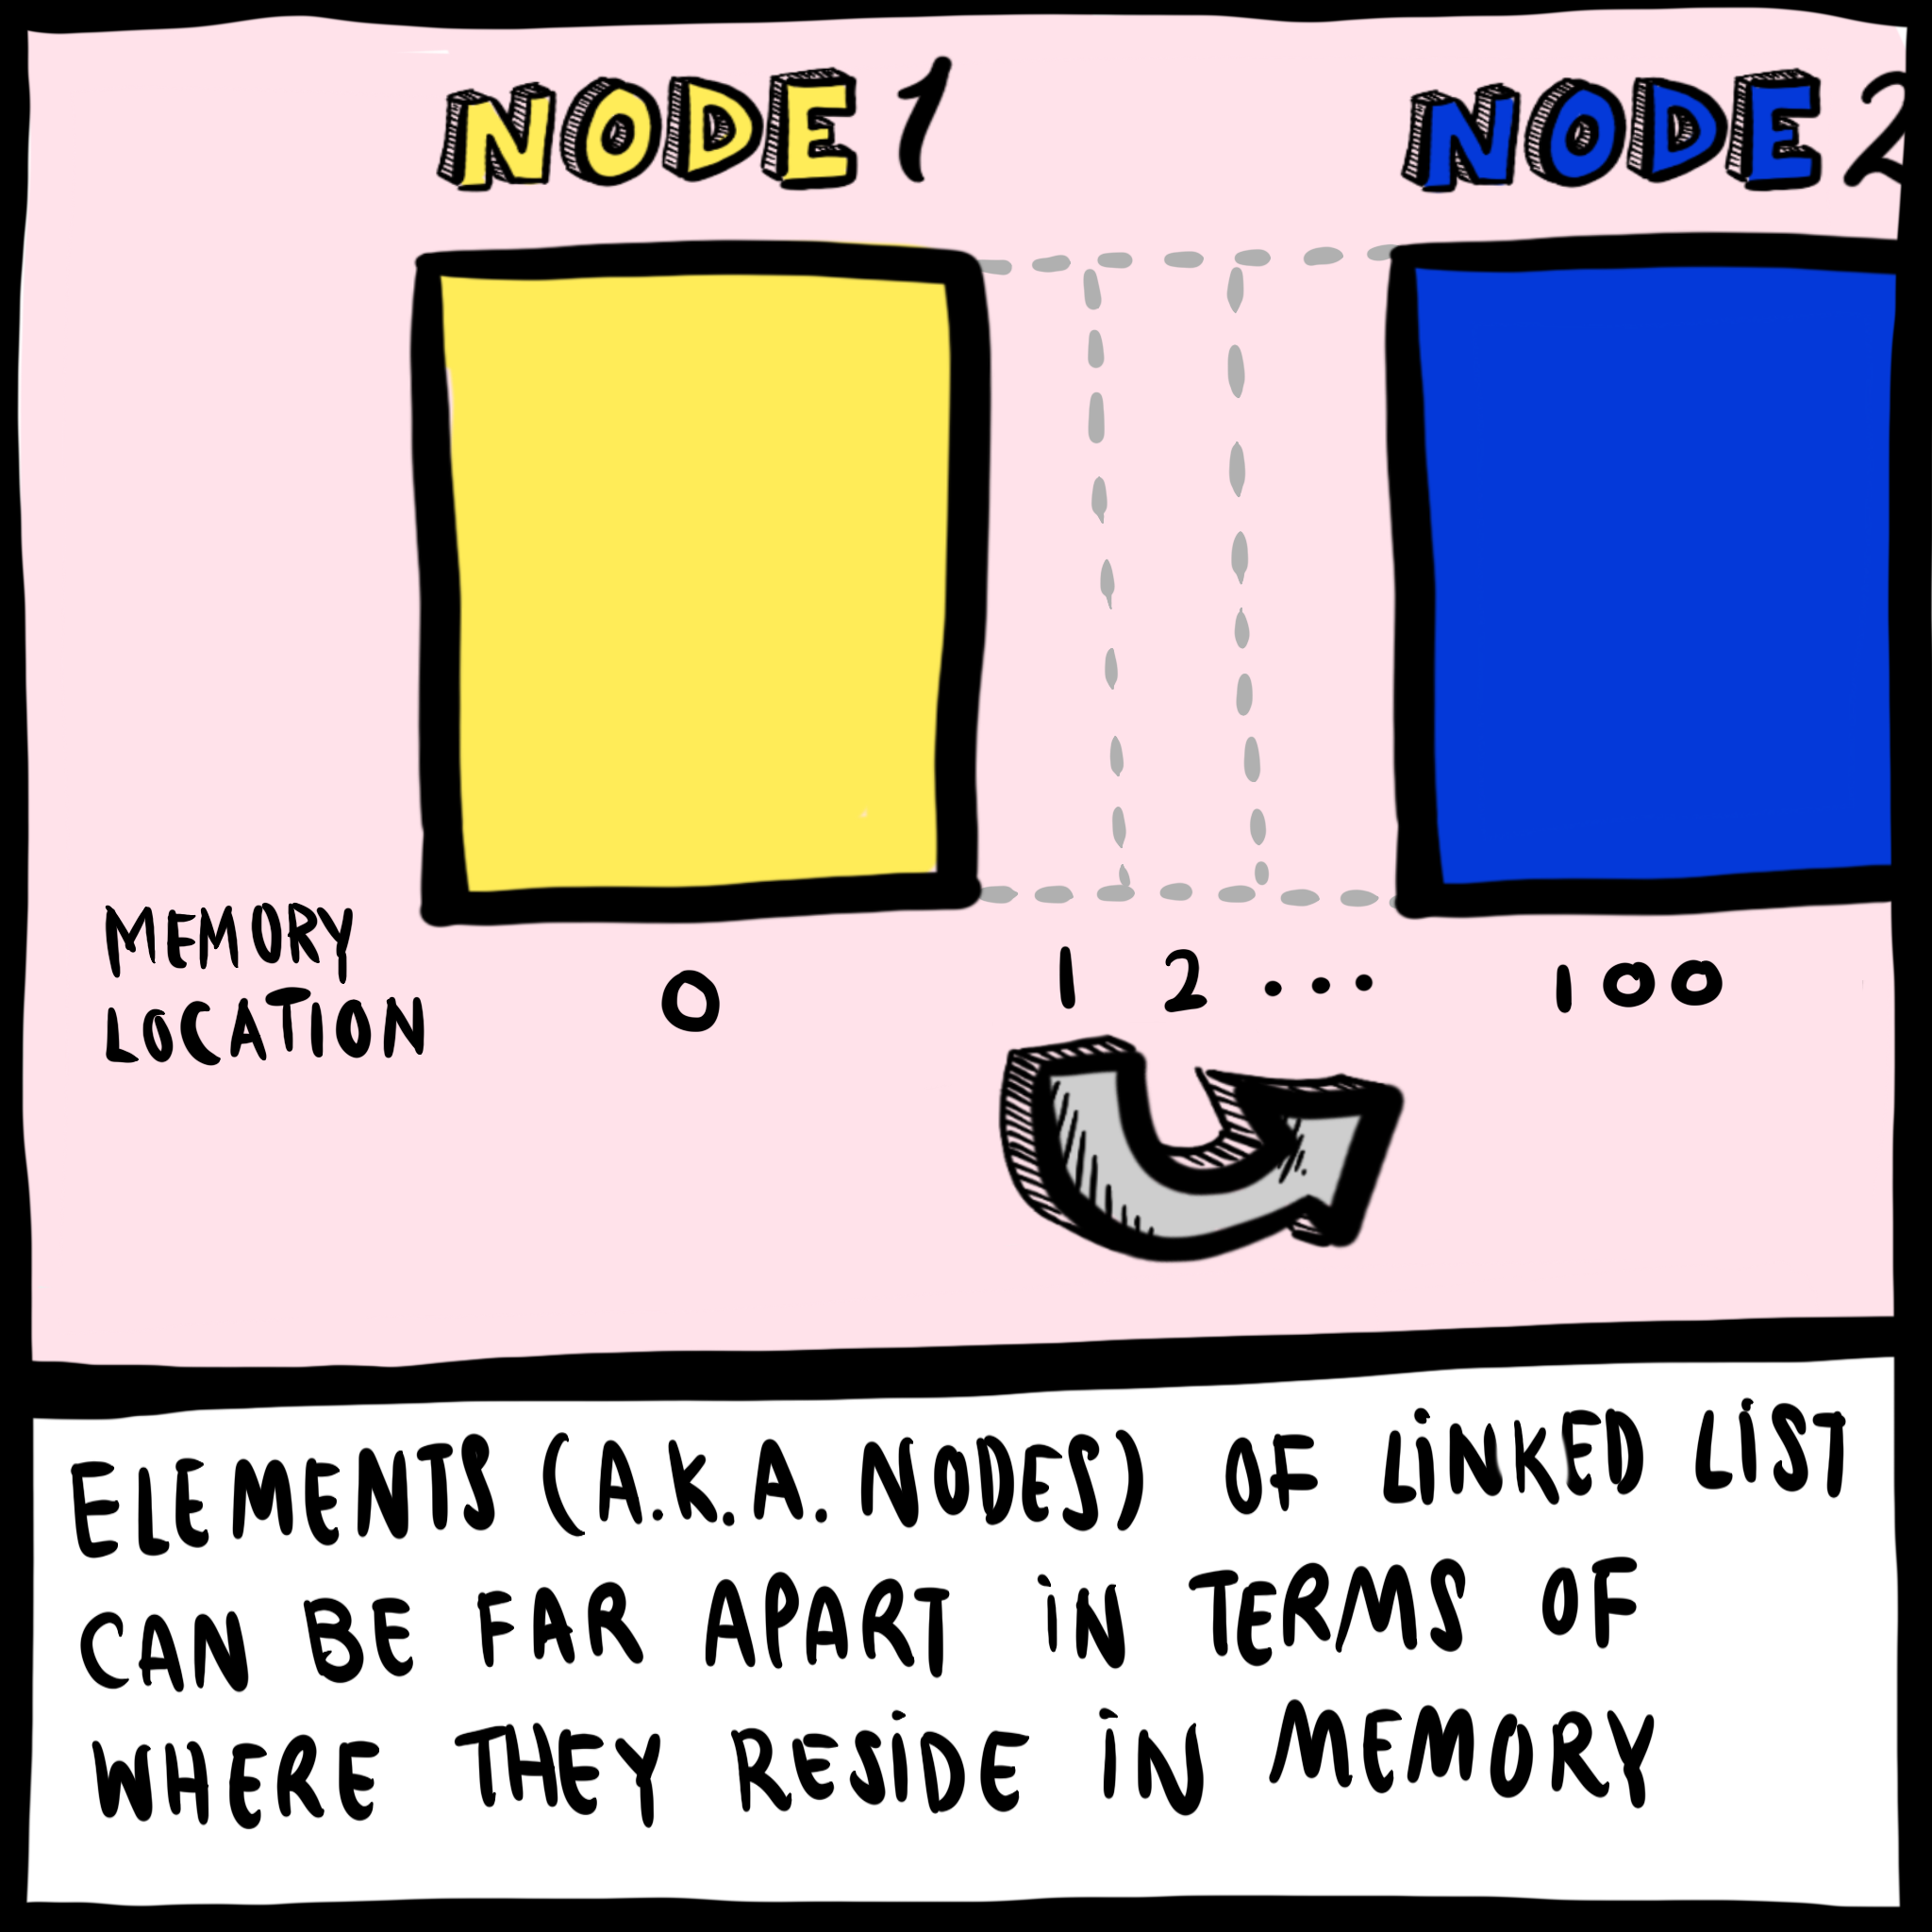 NODE 1 NODE 2
MEMORY
LOCATION
0 1 2 ... 100
ELEMENTS (A.K.A. NODES) OF LINKED LIST
CAN BE FAR APART IN TERMS OF
WHERE THEY RESIDE IN MEMORY